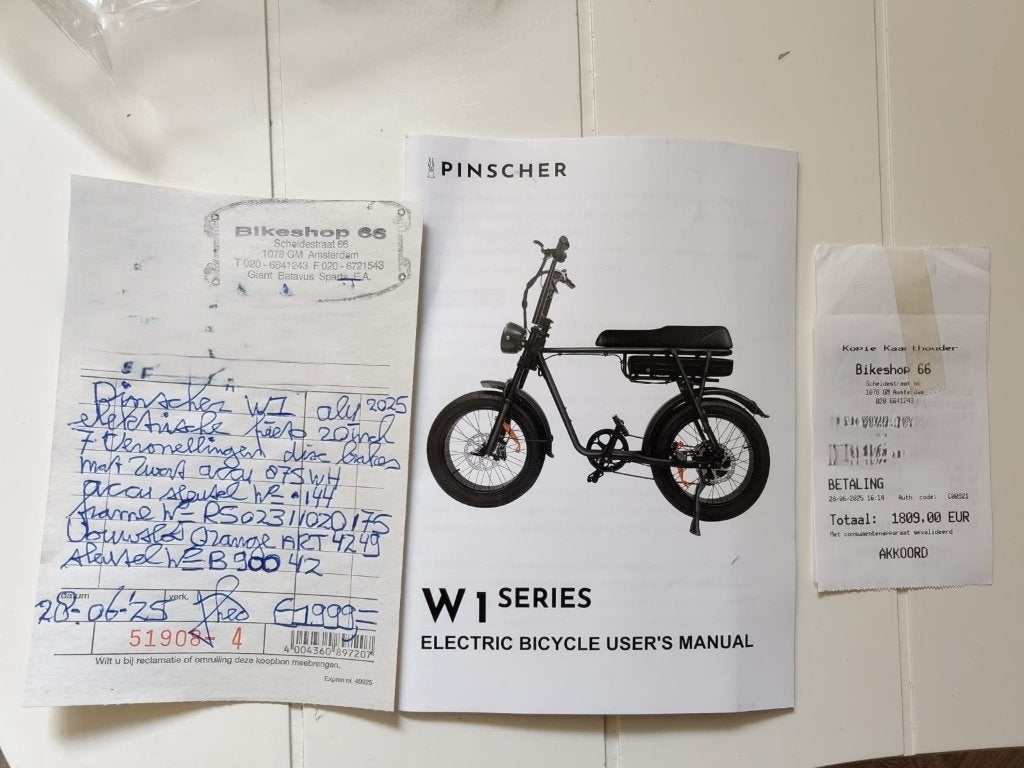 Bikeshop 66
Scheldestraat 66
1078 GM Amsterdam
T 020 - 6641243 F 020 - 6721543
Giant Batavus Sparta E.A.
Pinscher W1 aly 2025
elektrische fiets 20 inch
7 versnellingen disc brakes
mat zwart accu 875 WH
accu sleutel Nº 144
frame Nº RS02311020175
Vouwslot Orange ART 4249
sleutel Nº EB90042
datum
verk.
28-06-'25 Theo €1999,=
51908- 4
4 004360 897207
Wilt u bij reclamatie of omruiling deze koopbon meebrengen.
Expres nr. 40925
PINSCHER
W1 SERIES
ELECTRIC BICYCLE USER'S MANUAL
Kopie Kaarthouder
Bikeshop 66
Scheldestraat
1078 GM Amsterdam
020 6641243
BETALING
28/06/2025 16:14 Auth. code: C00921
Totaal: 1809.00 EUR
Met consumentenapparaat gevalideerd
AKKOORD